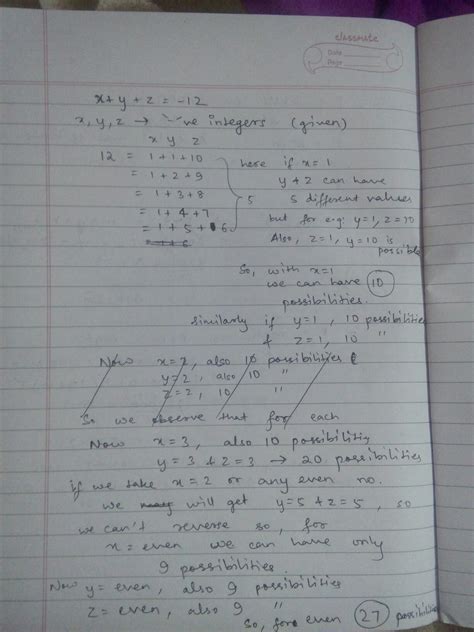 classmate
Date
Page
x + y + z = -12
x, y, z → '-'ve integers (given)
x y z
12 = 1+1+10 here if x = 1
= 1+2+9 y & z can have
= 1+3+8 5 5 different values
= 1+4+7 but for e.g: y=1, z=10
= 1+5+6 Also, z=1, y=10 is possible
So, with x=1
we can have 10
possibilities.
Similarly if y=1, 10 possibilities
& z=1, 10 "
Now x=2, also 10 possibilities
y=2, also 10 "
z=2, 10 "
So we observe that for each
Now x=3, also 10 possibilities
y=3 & z=3 → 20 possibilities
if we take x=2 or any even no.
we will get y=5 & z=5, so
we can't reverse so, for
x = even we can have only
9 possibilities.
Now y = even, also 9 possibilities
z = even, also 9 "
So, for even 27 possibilities